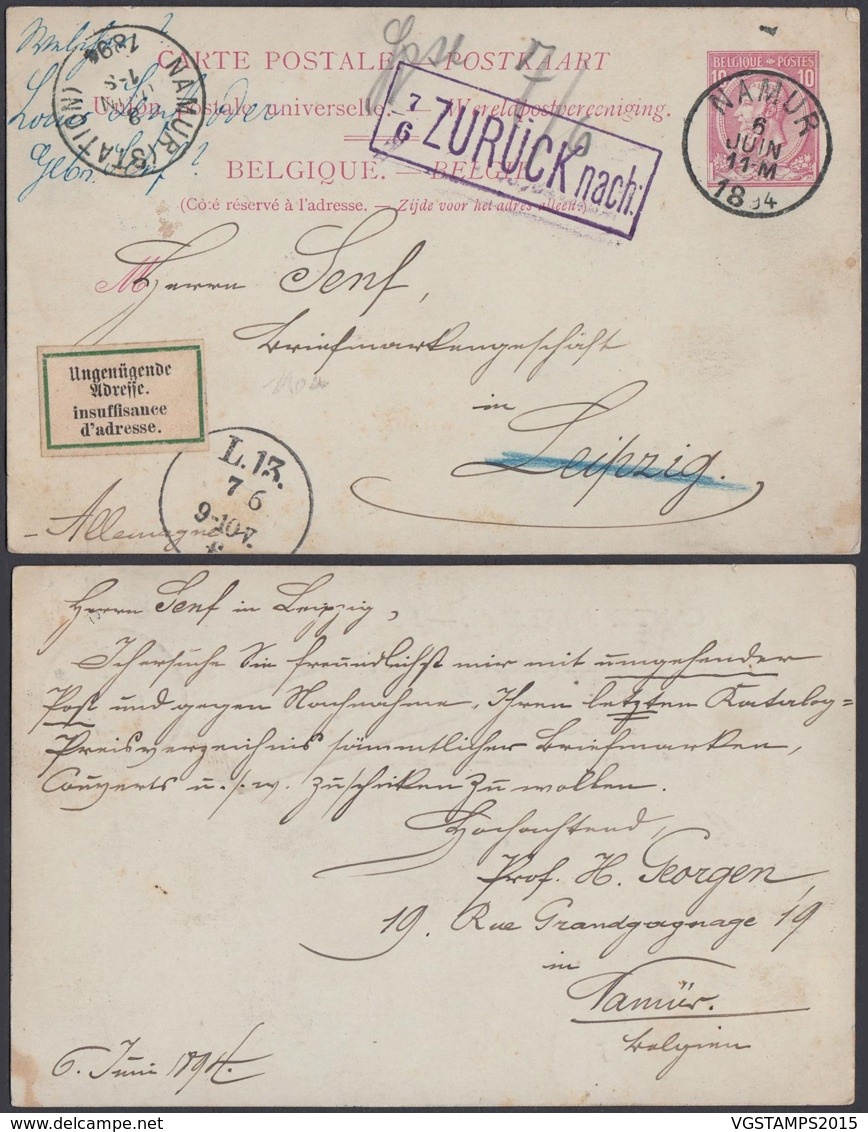 Welcher?
Louis Senf oder
Gebr. Senf?
NAMUR (STATION)
8 JUIN
1894
CARTE POSTALE. — POSTKAART
Union postale universelle. — Wereldpostvereeniging.
BELGIQUE. — BELGIË
(Côté réservé à l'adresse. — Zijde voor het adres alleen.)
7/6
7/6 ZURÜCK nach:
BELGIQUE • POSTES
10 10
NAMUR
6
JUIN
11-M
1894
M
Herrn Senf,
Briefmarkengeschäft
in
Leipzig.
Ungenügende
Adresse.
insuffisance
d'adresse.
L.13.
7 6
9-10V.
- Allemagne
Herrn Senf in Leipzig,
Ich ersuche Sie freundlichst mir mit umgehender
Post und gegen Nachnahme, Ihren letzten Katalog-
Preisverzeichnis sämmtlicher Briefmarken,
Couverts u.s.w. zuschicken zu wollen.
Hochachtend,
Prof. H. Georgen,
19. Rue Grandgagnage 19
in
Namür.
Belgien
6. Juni 1894.
VGSTAMPS2015